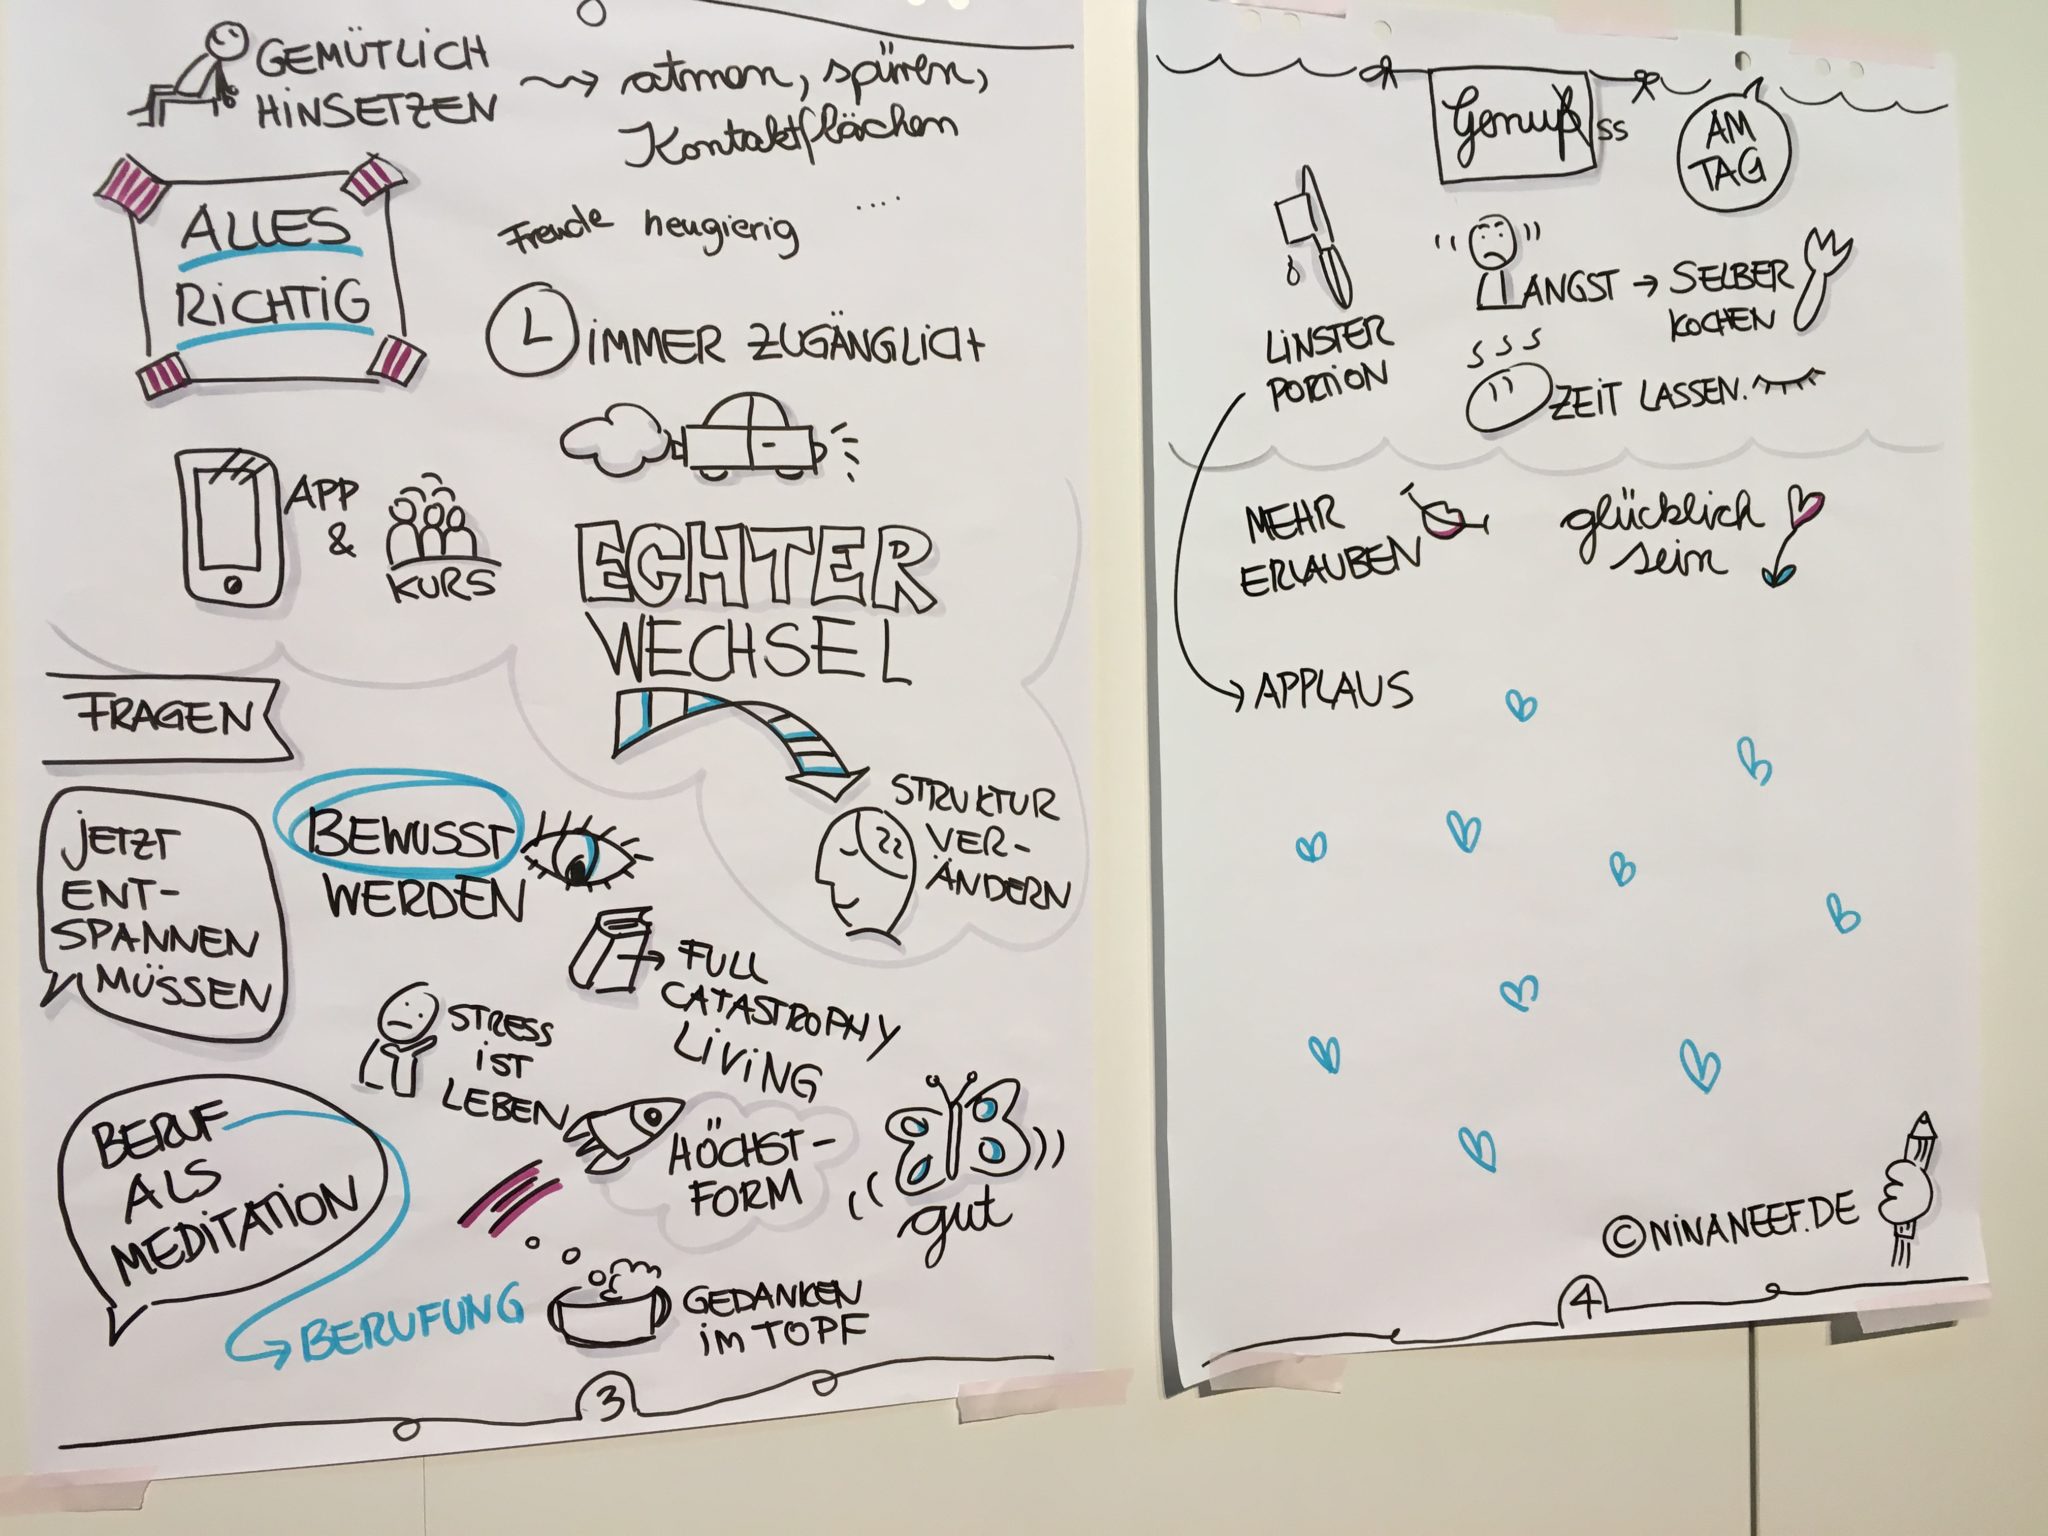 GEMÜTLICH
HINSETZEN
atmen, spüren,
Kontaktflächen
....
ALLES
RICHTIG
Freude neugierig
IMMER ZUGÄNGLICH
APP
&
KURS
ECHTER
WECHSEL
FRAGEN
STRUKTUR
VER-
ÄNDERN
JETZT
ENT-
SPANNEN
MÜSSEN
BEWUSST
WERDEN
FULL
CATASTROPHY
LIVING
STRESS
IST
LEBEN
BERUF
ALS
MEDITATION
BERUFUNG
HÖCHST-
FORM
gut
GEDANKEN
IM TOPF
3
Genuß ss
AM
TAG
LINSTER
PORTION
ANGST → SELBER
KOCHEN
ZEIT LASSEN.
MEHR
ERLAUBEN
glücklich
sein
APPLAUS
© NINANEEF.DE
4